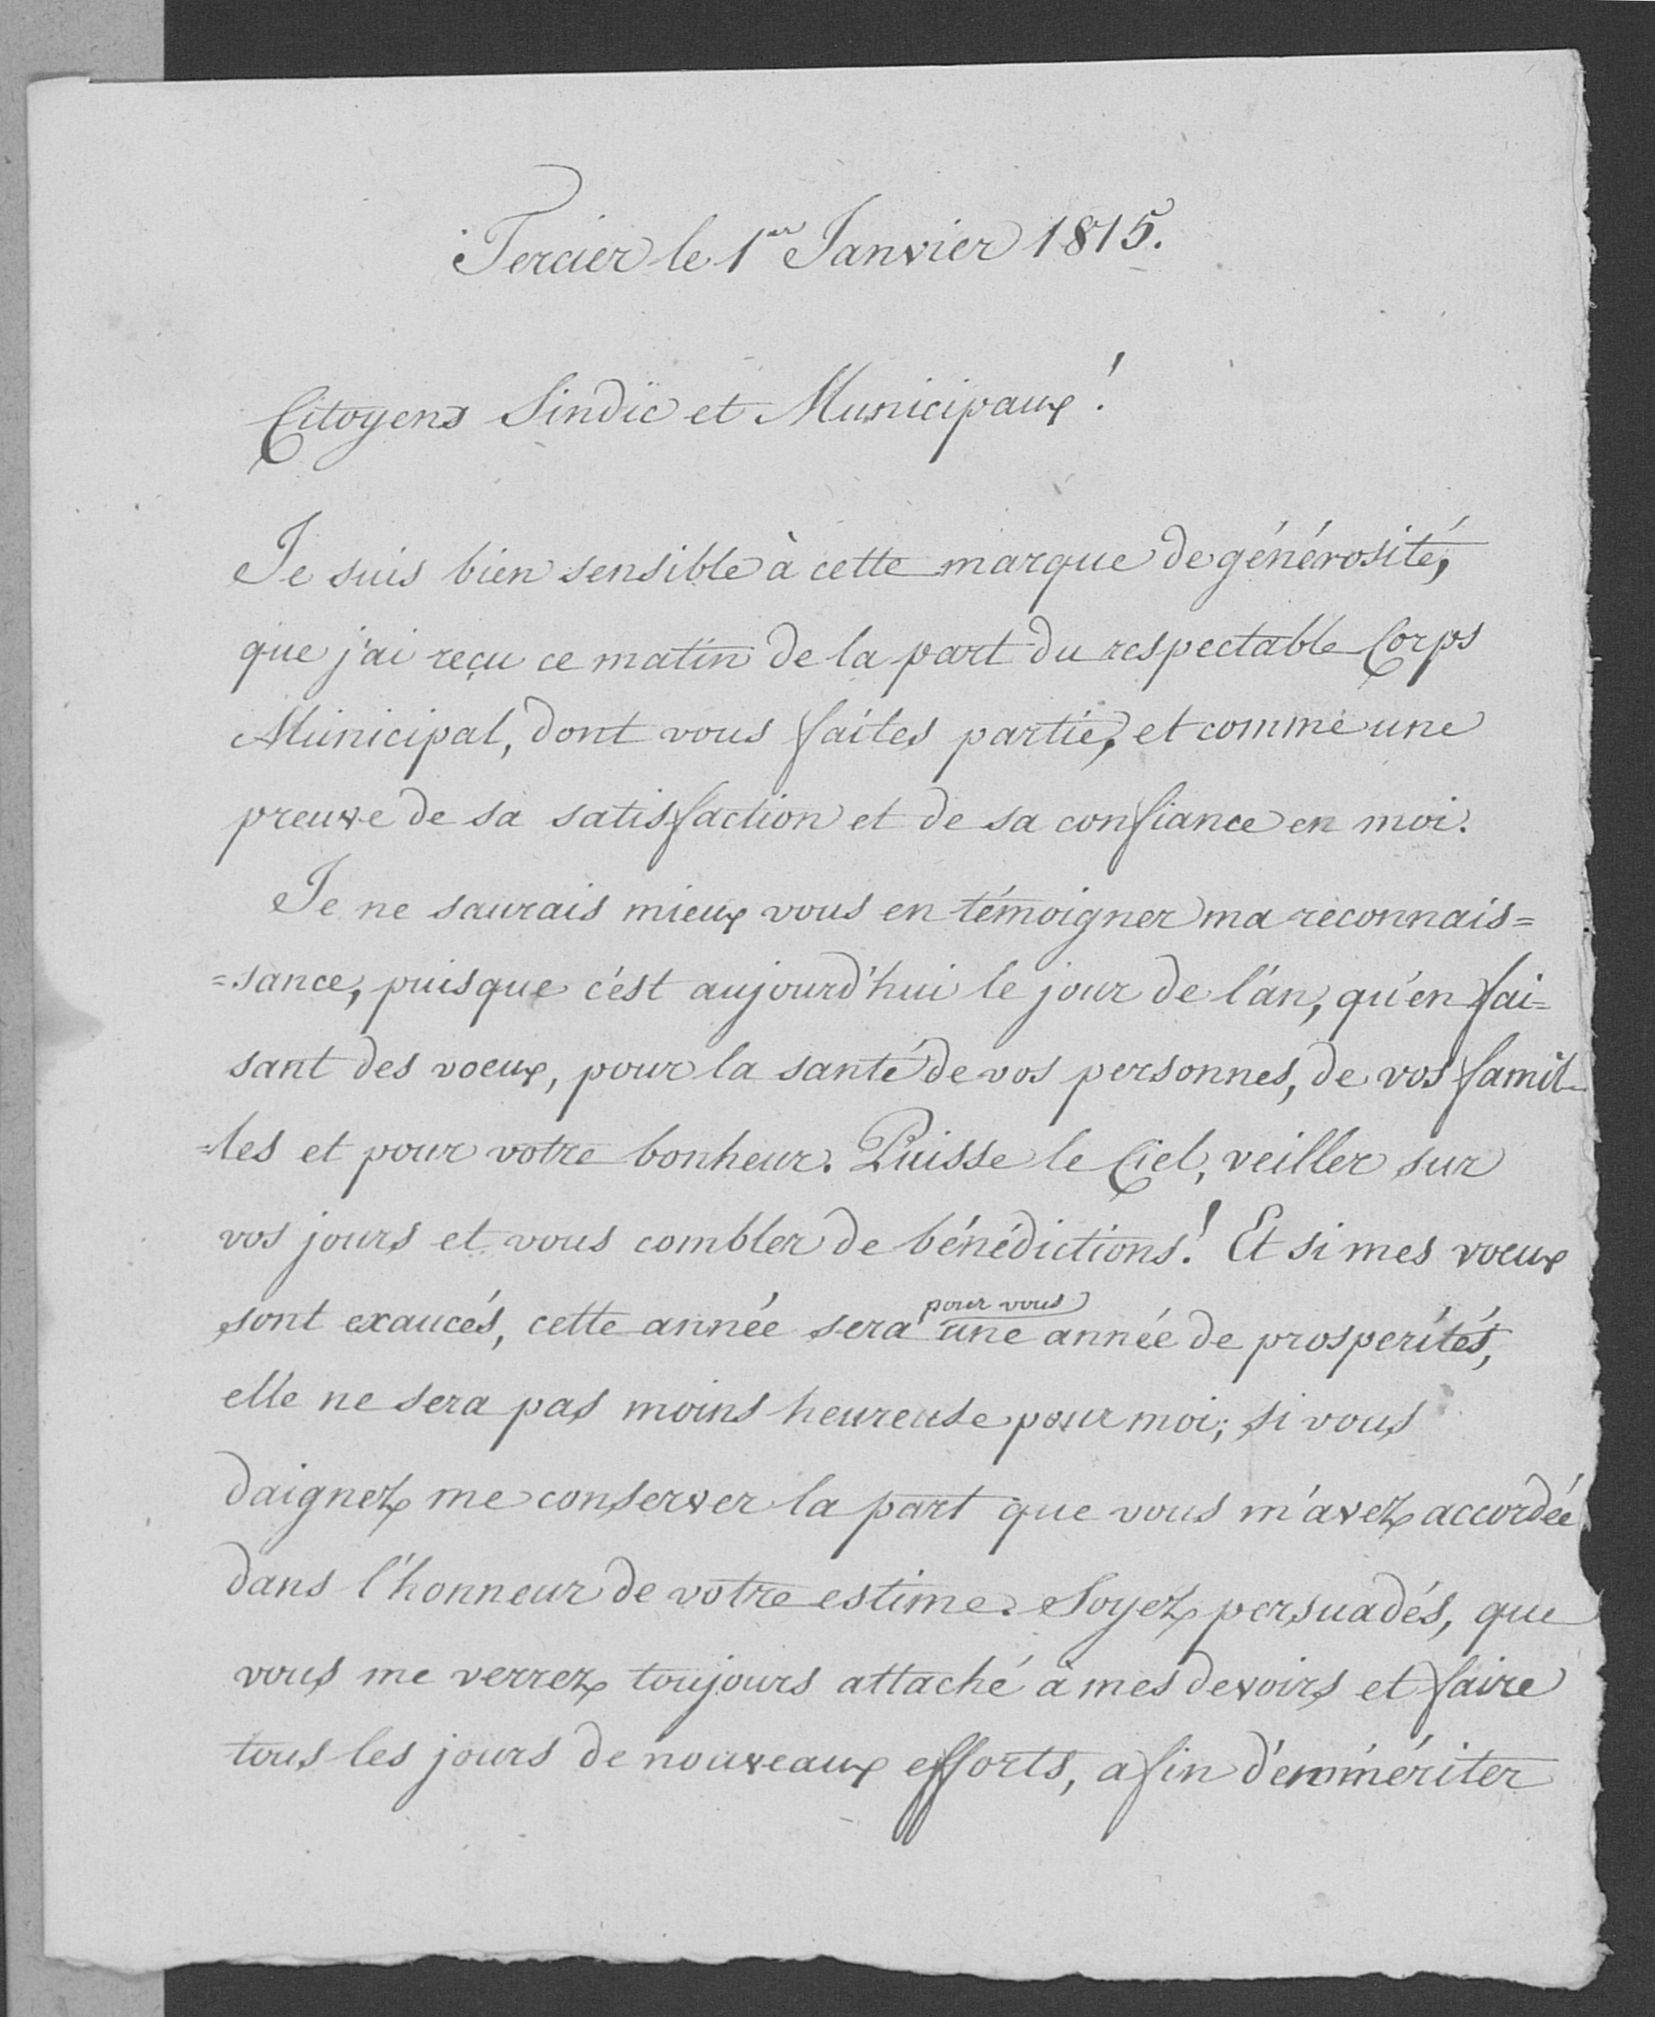 Tercier le 1er Janvier 1815.
Citoyens Sindic et Municipaux!
Je suis bien sensible à cette marque de générosité,
que j'ai reçu ce matin de la part du respectable Corps
Municipal, dont vous faites partie, et comme une
preuve de sa satisfaction et de sa confiance en moi.
Je ne saurais mieux vous en témoigner ma reconnais=
=sance, puisque c'est aujourd'hui le jour de l'an, qu'en fai=
sant des voeux, pour la santé de vos personnes, de vos famil-
=les et pour votre bonheur. Puisse le Ciel, veiller sur
vos jours et vous combler de bénédictions! Et si mes voeux
pour vous
sont exaucés, cette année sera une année de prosperités,
elle ne sera pas moins heureuse pour moi; si vous
daignez me conserver la part que vous m'avez accordée
dans l'honneur de votre estime. Soyez persuadés, que
vous me verrez toujours attaché à mes devoirs et faire
tous les jours de nouveaux efforts, afin d'en mériter